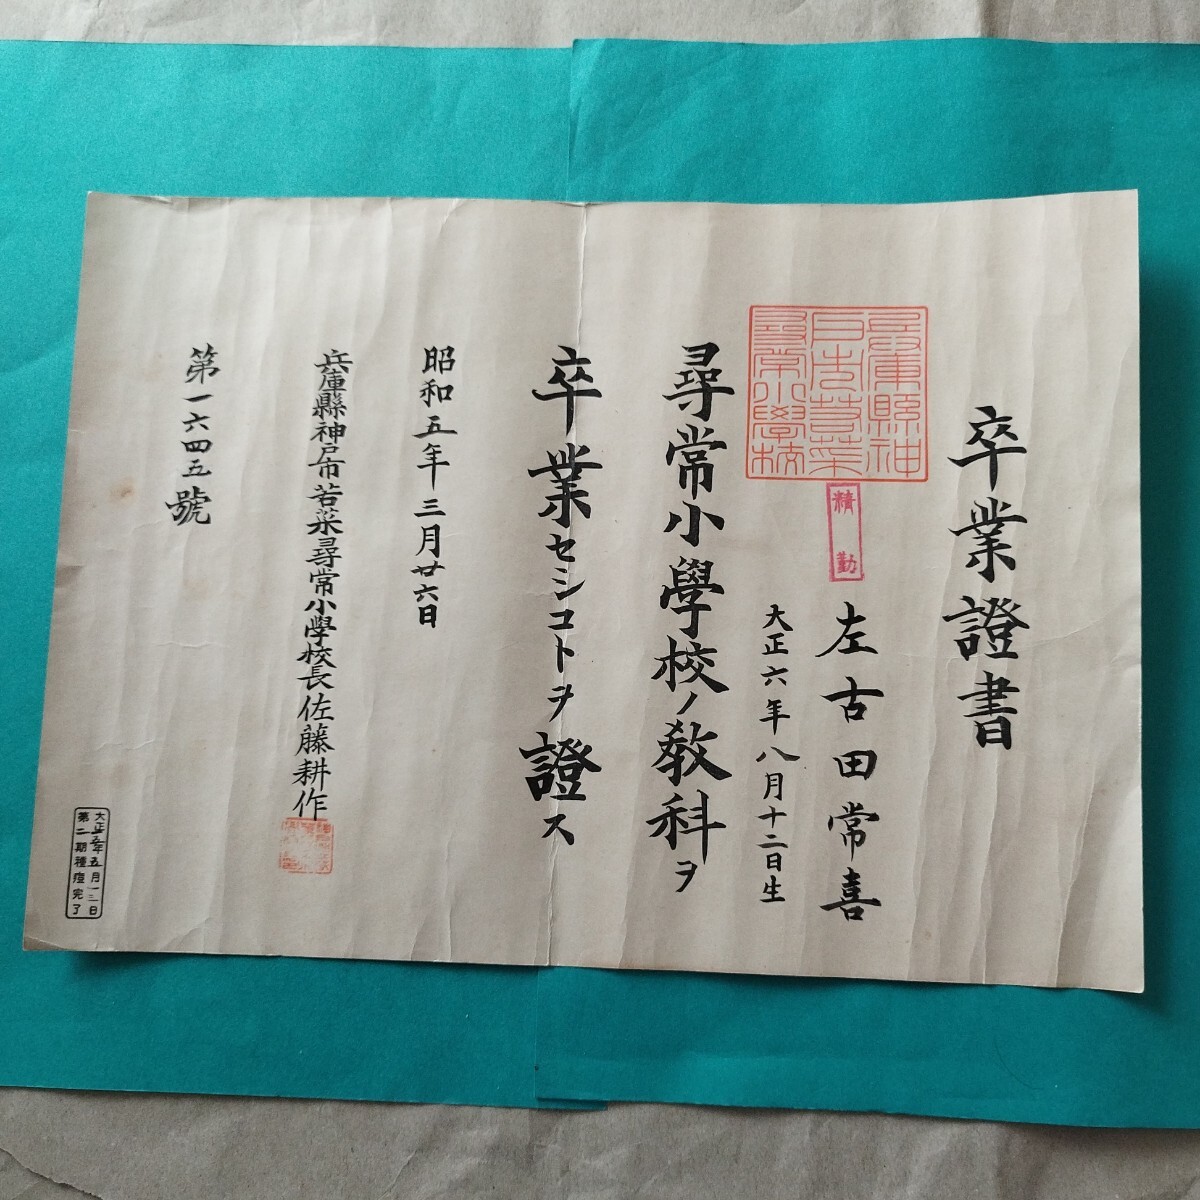 卒業證書
兵庫縣神
戸市若菜
尋常小學校
精勤
左古田常喜
大正六年八月十二日生
尋常小學校ノ教科ヲ
卒業セシコトヲ證ス
昭和五年三月廿六日
兵庫縣神戸市若菜尋常小學校長佐藤耕作
第一六四五號
第二期種痘完了